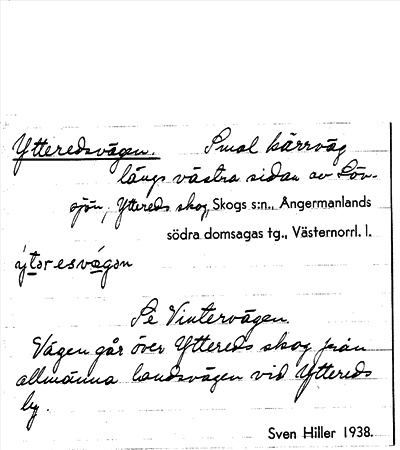 Ytteredsvägen. Smal kärrväg
längs västra sidan av Löv-
sjön, Yttereds skog, Skogs s:n., Ångermanlands
södra domsagas tg., Västernorrl. l.
ýtəresvägən
Se Vintervägen.
Vägen går över Yttereds skog från
allmänna landsvägen vid Yttereds
by.
Sven Hiller 1938.